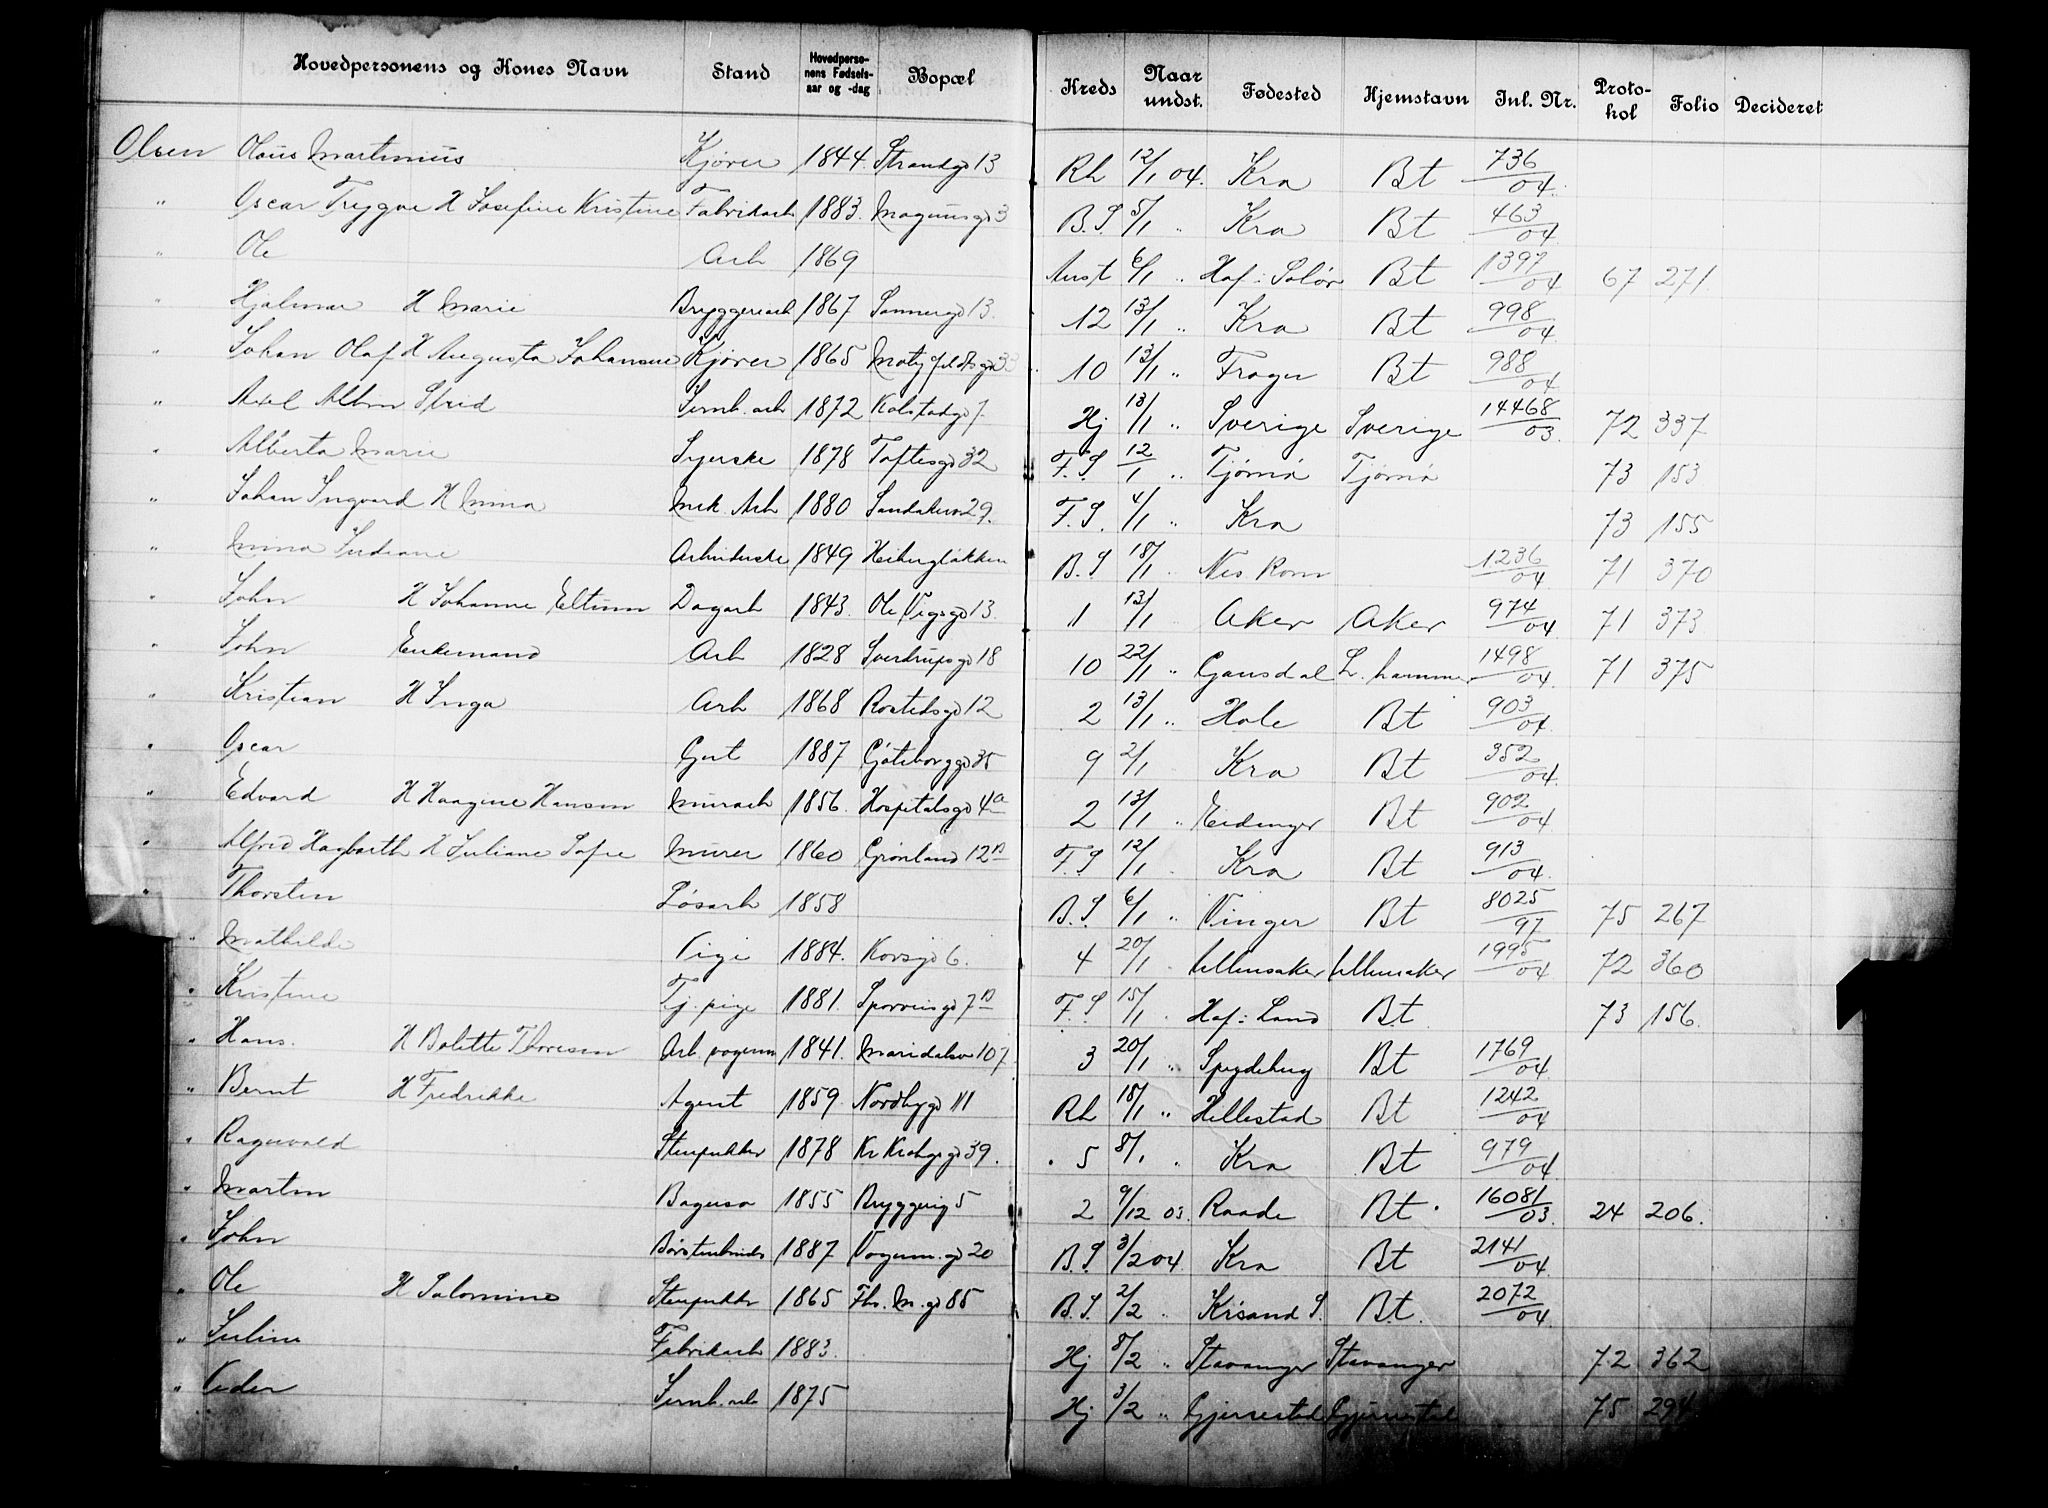 Hovedpersonens og Kones Navn Stand Hovedpersonens Fødselsaar og -dag Bopæl Kreds Naar undst. Fødested Hjemstavn Inl. Nr. Protokol Folio Decideret
Olsen Olaus Martinius Kjører 1844. Strandgd 13 Rh 12/1 04. Kra Bt 736/04.
" Oscar Trygve H Josefine Kristine Fabrikarb 1883. Magnusgd 3 B.S 5/1 " Kra Bt 463/04
" Ole Arb 1869 Anst 6/1 " Hof i Solør Bt 1397/04 67 271.
" Hjalmar H Marie Bryggeriarb 1867 Sannergd 13. 12 13/1 " Kra Bt 998/04.
" Johan Olaf H Augusta Johansen Kjører 1865 Motzfeldtsgd 33 10 13/1 " Frogn Bt 988/04
" Axel Albin Strid Jernb. arb 1872 Kolstadgd 7. Hj 13/1 " Sverige Sverige 14468/03. 72 337
" Alberta Marie Syerske 1878 Toftesgd 32 F.S. 12/1 " Tjømø Tjømø 73 153
" Johan Ingvard H Anna Mek. Arb 1880 Sandakerv 29. F.S. 4/1 " Kra 73 155
" Mina Indiane Arbeiderske 1849 Heibergløkken B.S 18/1 Nes Rom 1236/04 71 370
" John H Johanne Eltum Dagarb 1843. Ole Vigsgd 13. 1 13/1 Aker Aker 974/04. 71 373
" John Enkemand Arb 1828 Sverdrupsgd 18 10 22/1 " Gausdal L. hammer 1498/04. 71 375
" Kristian H Inga Arb 1868 Rostedsgd 12 2 13/1 " Hole Bt 903/04
" Oscar Gut 1887 Gøteborggd 35 9 2/1 Kra Bt 352/04.
" Edvard H Haagine Hansen Murarb 1856. Hospitalsgd 4a 2 13/1 " Eidanger Bt 902/04
" Alfred Hagbarth H Juliane Sofie Murer 1860 Grønland 12B F.S 12/1 Kra Bt 913/04.
" Thorsten Løsarb 1858 B.S. 6/1 " Vinger Bt 8025/97 75 267
" Mathilde Pige 1884. Korsgd 6. 4 20/1 Ullensaker Ullensaker 1995/04 72 360
" Kristine Tj. pige 1881. Sporveisgd 7B F.S 15/1 Hof i Land Bt 73 156.
" Hans. H Bolette Thoresen Arb. vogum 1841. Maridalsv 107. 3 20/1 " Spydeberg Bt 1769/04.
" Bernt H Fredrikke Agent 1859. Nordbygd 11 Rh 18/1 " Hillestad Bt 1242/04
" Ragnvald Stenpukker 1878 Kr Krohgsgd 39. 5 8/1 " Kra Bt 979/04.
" Martin Bagersv 1855 Bryggerig 5 2 9/12 03. Raade Bt. 16081/03. 24 206.
" John Børstenbinder 1887 Vognm. gd 20 B.S. 3/2 04. Kra Bt 2141/04.
" Ole H Salomine Stenpukker 1865 Ths. M. gd 85 B.S. 2/2 Krisand S. Bt. 2072/04.
" Juline Fabrikarb 1883. Hj 8/2 " Stavanger Stavanger 72 362
" Peder Jernb. arb 1875 Hj 3/2 " Gjerrestad Gjerrestad 75 294